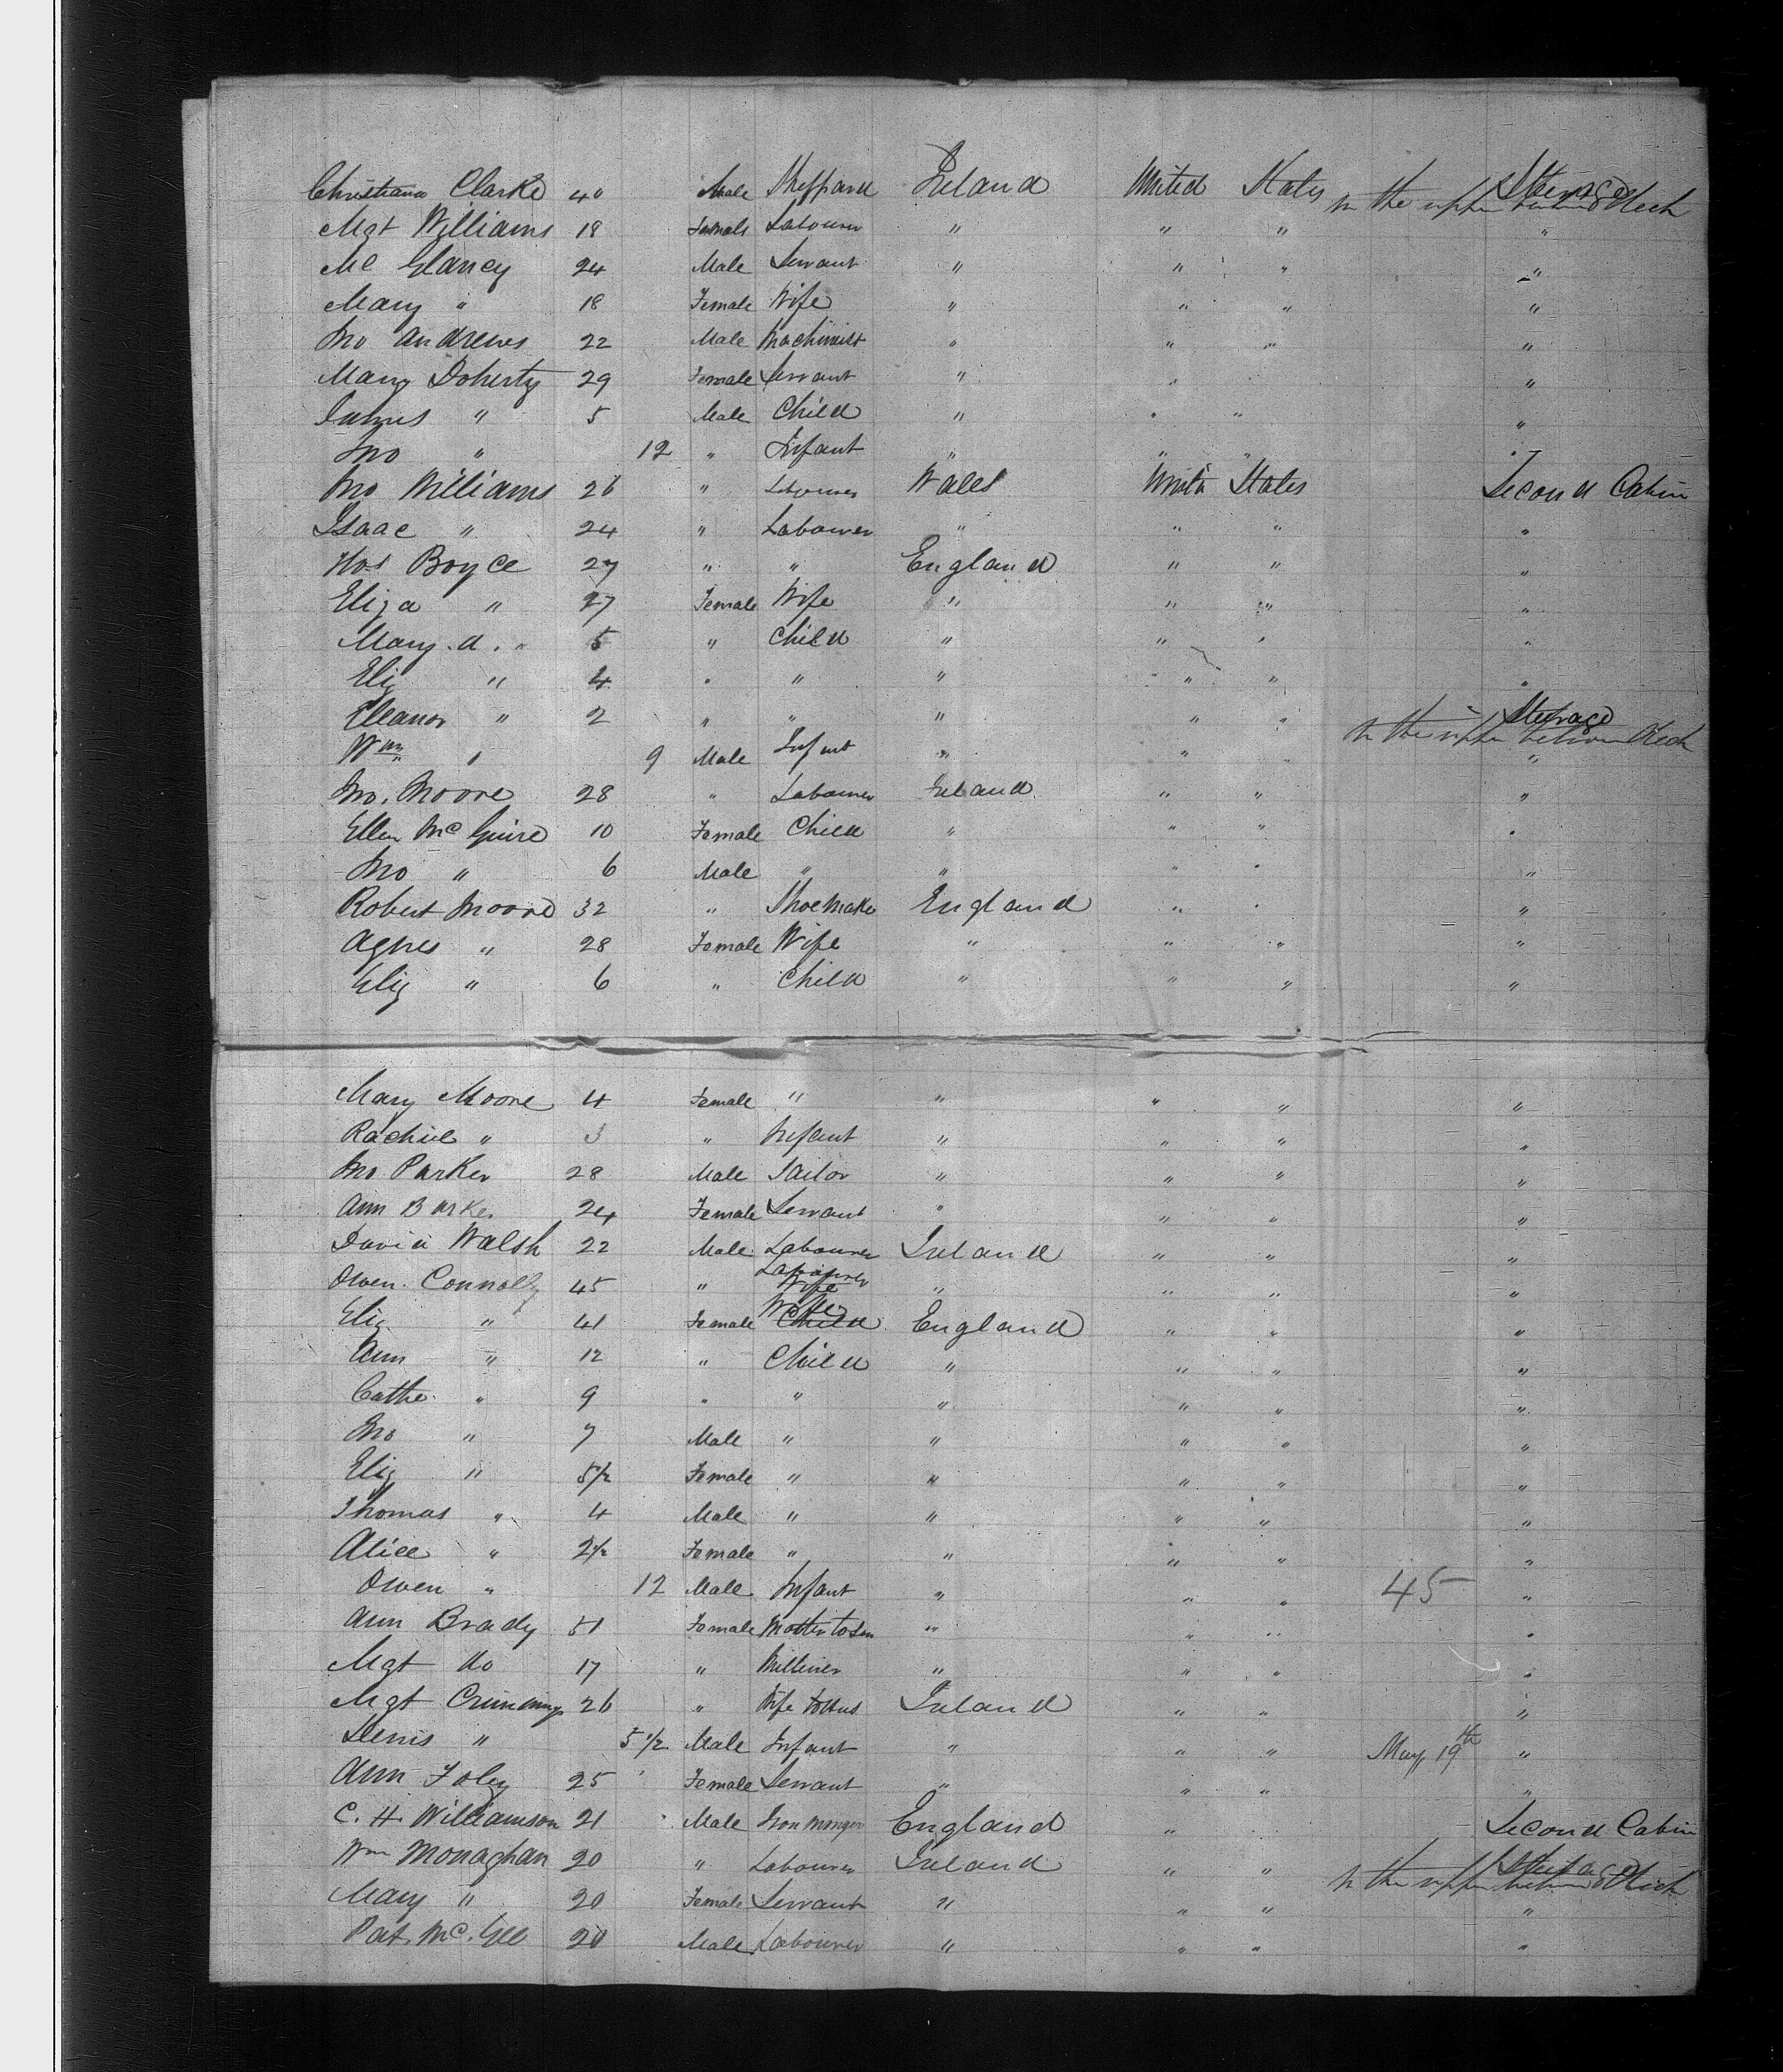 Christiana Clarke 40 Male Sheppard Ireland United States Steerage in the upper between Deck
Mgt Williams 18 Female Labourer " " " "
Mc Glancy 24 Male Servant " " " "
Mary " 18 Female Wife " " " "
Jno Andrews 22 Male Machinist " " " "
Mary Doherty 29 Female Servant " " "
James " 5 Male Child " " " "
Jno " 12 " Infant " " " "
Jno Williams 26 " Labourer Wales United States Second Cabin
Isaac " 24 " Labourer " " " "
Thos Boyce 27 " " England " " "
Eliza " 27 Female Wife " " " "
Mary. A. " 5 " Child " " " "
Eliz " 4 " " " " " "
Eleanor " 2 " " " " " Steerage in the upper between Deck
Wm " 9 Male Infant " " " "
Jno. Moore 28 " Labourer Ireland " " "
Ellen McGuire 10 Female Child " " " "
Jno " 6 Male " " " " "
Robert Moore 32 " Shoemaker England " " "
Agnes " 28 Female Wife " " " "
Eliz " 6 " Child " " " "
Mary Moore 4 Female " " " " "
Rachiel " 3 " Infant " " " "
Jno Parker 28 Male Tailor " " " "
Ann Barker 24 Female Servant " " " "
David Walsh 22 Male Labourer Ireland " " "
Owen Connolly 45 " Labourer Wife " " " "
Eliz " 41 Female Wife Child England " " "
Ann " 12 " Child " " " "
Cathe " 9 " " " " " "
Jno " 7 Male " " " " "
Eliz " 5½ Female " " " " "
Thomas " 4 Male " " " " "
Alice " 2½ Female " " " " "
Owen " 12 Male Infant " " " 45 "
Ann Brady 51 Female Mother to Son " " " "
Mgt do 17 " Milliner " " " "
Mgt Crummings 26 " Wife to Hus Ireland " " "
Denis " 5½ Male Infant " " " May 19th "
Ann Foley 25 Female Servant " " " "
C. H. Williamson 21 Male Iron monger England " Second Cabin
Wm Monaghan 20 " Labourer Ireland " " Steerage in the upper between Deck
Mary " 20 Female Servant " " " "
Pat. McGee 20 Male Labourer " " " "